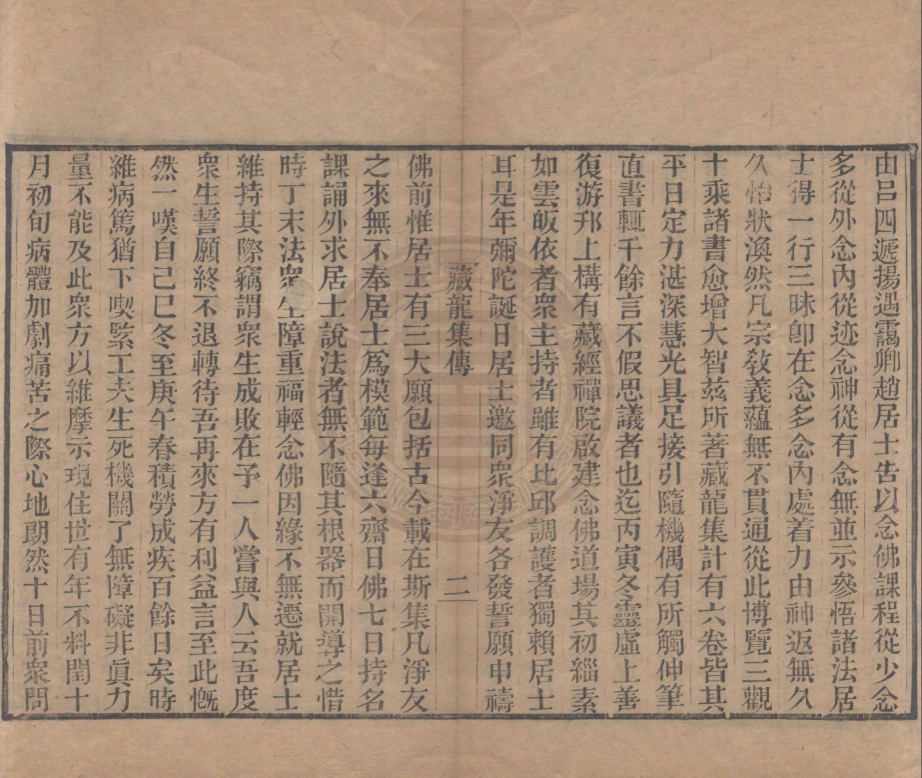 由呂四遞揚遇靄卿趙居士告以念佛課程從少念
多從外念內從迹念神從有念無並示參悟諸法居
士得一行三昧卽在念多念內處着力由神返無久
久怡狀渙然凡宗教義蘊無不貫通從此博覽三觀
十乘諸書愈增大智茲所著藏龍集計有六卷皆其
平日定力湛深慧光具足接引隨機偶有所觸伸筆
直書輒千餘言不假思議者也迄丙寅冬靈虛上善
復游邗上構有藏經禪院啟建念佛道場其初緇素
如雲皈依者衆主持者雖有比邱調護者獨賴居士
耳是年彌陀誕日居士邀同衆淨友各發誓願申禱
藏龍集傳 二
佛前惟居士有三大願包括古今載在斯集凡淨友
之來無不奉居士爲模範每逢六齋日佛七日持名
課誦外求居士說法者無不隨其根器而開導之惜
時丁末法衆生障重福輕念佛因緣不無遷就居士
維持其際竊謂衆生成敗在予一人嘗與人云吾度
衆生誓願終不退轉待吾再來方有利益言至此慨
然一嘆自己巳冬至庚午春積勞成疾百餘日矣時
雖病篤猶下喫緊工夫生死機關了無障礙非眞力
量不能及此衆方以維摩示現住世有年不料閏十
月初旬病體加劇痛苦之際心地朗然十日前衆問